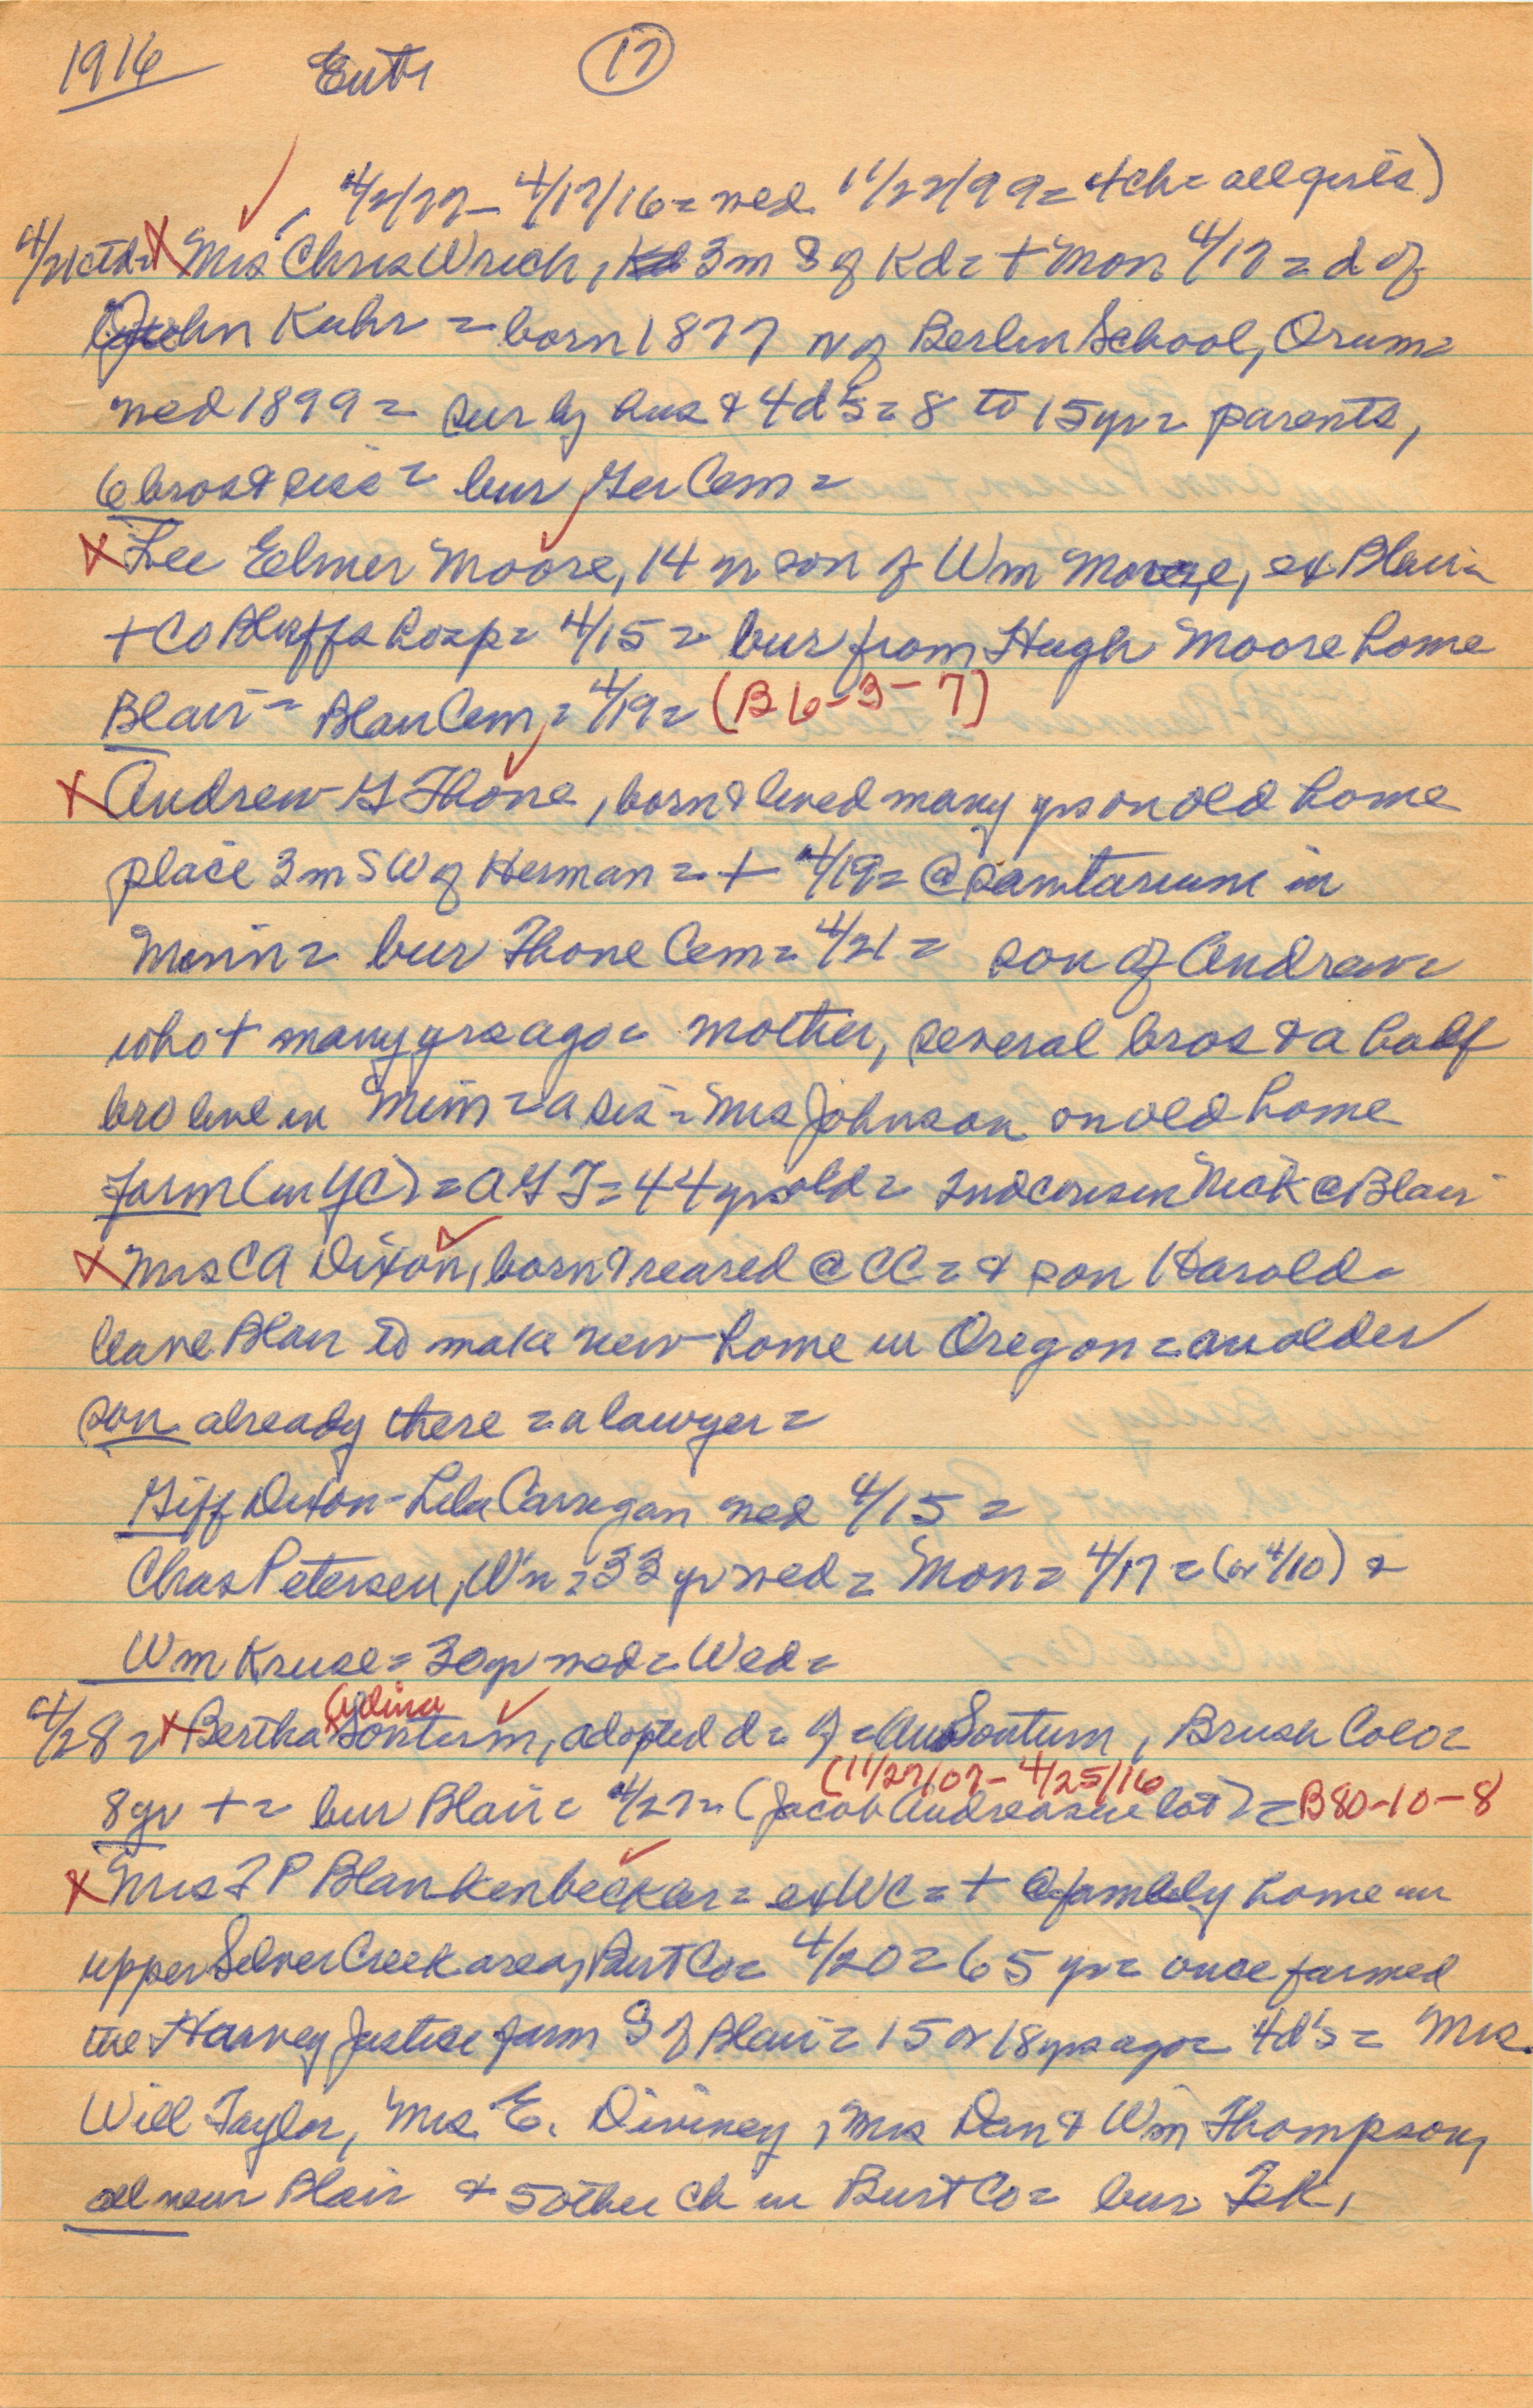 1916 Ent. (17)
4/2/77 - 4/17/16 = wed 11/22/99 = 4 ch = all girls)
4/21 x Mrs Chris Wrich, 3m S of Kd = + Mon 4/17 = d of
John Kuhr = born 1877 N of Berlin School, Orum =
wed 1899 = sur by hus & 4 d's = 8 to 15 yr = parents,
6 bros & sis = bur Ger Cem =
x Lee Elmer Moore, 14 yr son of Wm Moore, ex Blair =
+ Co Bluffs hosp = 4/15 = bur from Hugh Moore home
Blair = Blair Cem = 4/19 = (B 6-3-7)
x Andrew G Thone, born & lived many yrs on old home
place 3m SW of Herman = + 4/19 = @ sanitarium in
Minn = bur Thone Cem = 4/21 = son of Andrew =
who + many yrs ago = mother, several bros & a half
bro live in Minn = a sis = Mrs Johnson on old home
farm (in YC) = AGT = 44 yrs old = 2nd cousin Nick @ Blair
x Mrs CA Dixon, born & reared @ CC = & son Harold =
leave Blair to make new home in Oregon = an older
son already there = a lawyer =
Giff Dixon - Lela Carrigan wed 4/15 =
Chas Petersen, Wn = 33 yr wed = Mon = 4/17 = (or 4/10) &
Wm Kruse = 30 yr wed = Wed =
4/28 = x Bertha Sonturm, adopted d = of = Sonturm, Brush Colo =
(11/27/07 - 4/25/16
8 yr + = bur Blair = 4/27 = (Jacob Andreasen lot) = B80-10-8
x Mrs F P Blankenbeckler = ex WC = + @ family home in
upper Silver Creek area, Burt Co = 4/20 = 65 yr = once farmed
the Harvey Justice farm S of Blair = 15 or 18 yrs ago = 4 d's = Mrs.
Will Taylor, Mrs E. Diviney, Mrs Dan & Wm Thompson,
all near Blair & 5 other ch in Burt Co = bur Tek,